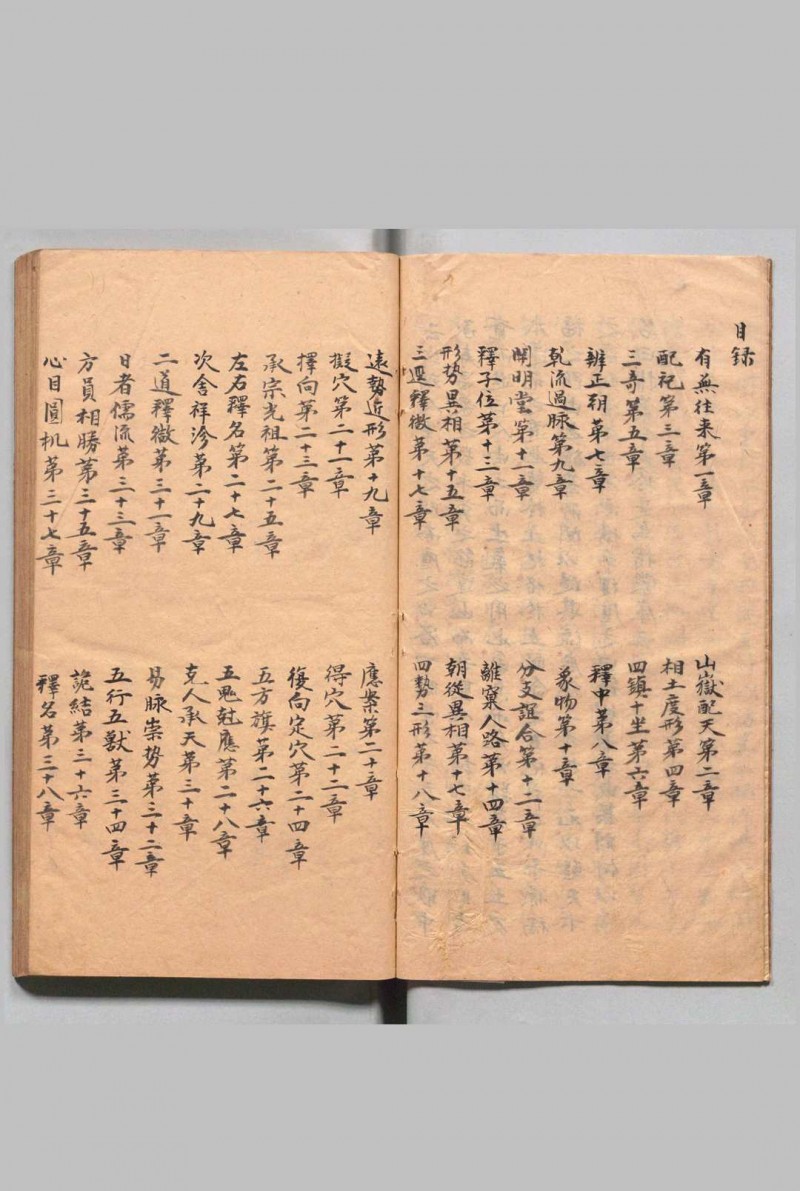 目録
有無往来第一章
山嶽配天第二章
配祀第三章
相土度形第四章
三奇第五章
四鎮十坐第六章
辨正朝第七章
釋中第八章
乾流過脉第九章
象物第十章
開明堂第十一章
分支誼合第十二章
釋子位第十三章
離窠入路第十四章
形勢異相第十五章
朝從異相第十七章
三逕釋微第十七章
四勢三形第十八章
遠勢近形第十九章
應案第二十章
擬穴第二十一章
得穴第二十二章
擇向第二十三章
復向定穴第二十四章
承宗光祖第二十五章
五方旗第二十六章
左右釋名第二十七章
五鬼尅應第二十八章
次舍祥沴第二十九章
克人承天第三十章
二道釋微第三十一章
易脉崇势第三十二章
日者儒流第三十三章
五行五獸第三十四章
方員相勝第三十五章
詭結第三十六章
心目圓机第三十七章
釋名第三十八章